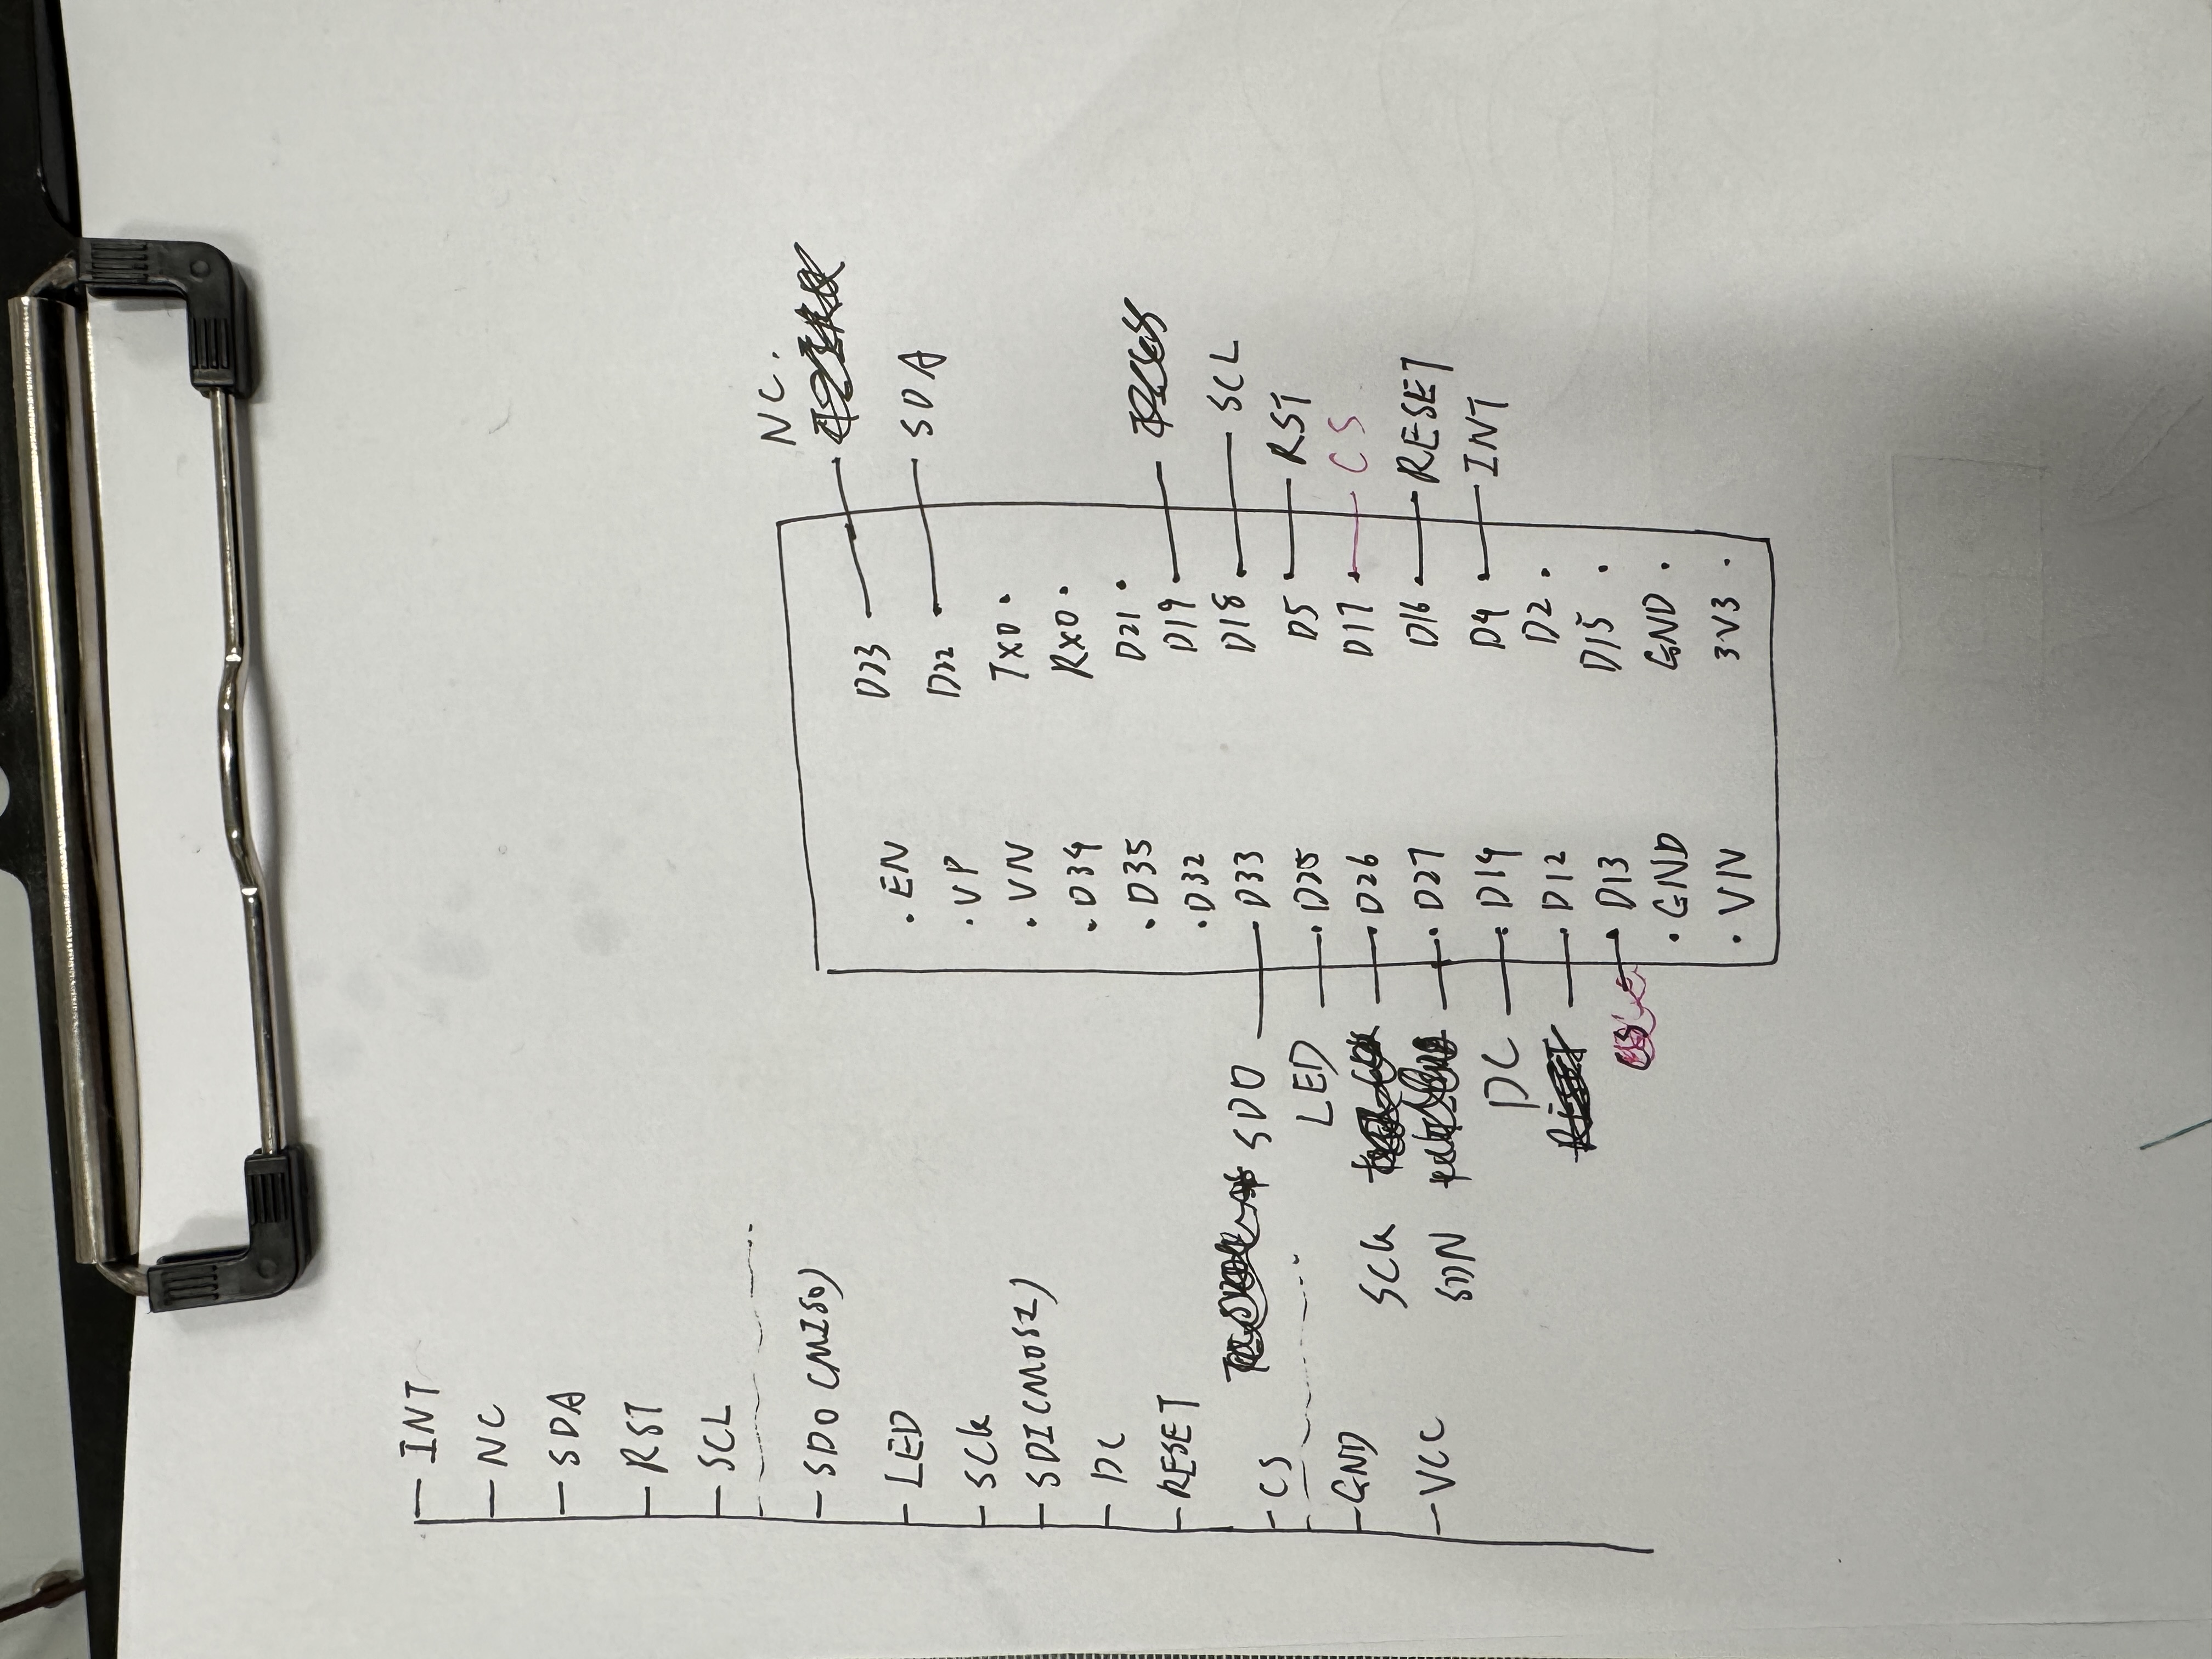 INT
NC
SDA
RST
SCL
SDO (MISO)
LED
SCK
SDI (MOSI)
DC
RESET
CS
GND
VCC
SDO
LED
SCK
SDN
DC
EN
VP
VN
D34
D35
D32
D33
D25
D26
D27
D14
D12
D13
GND
VIN
D23
D22
TX0
RX0
D21
D19
D18
D5
D17
D16
D4
D2
D15
GND
3V3
NC.
SDA
SCL
RST
CS
RESET
INT